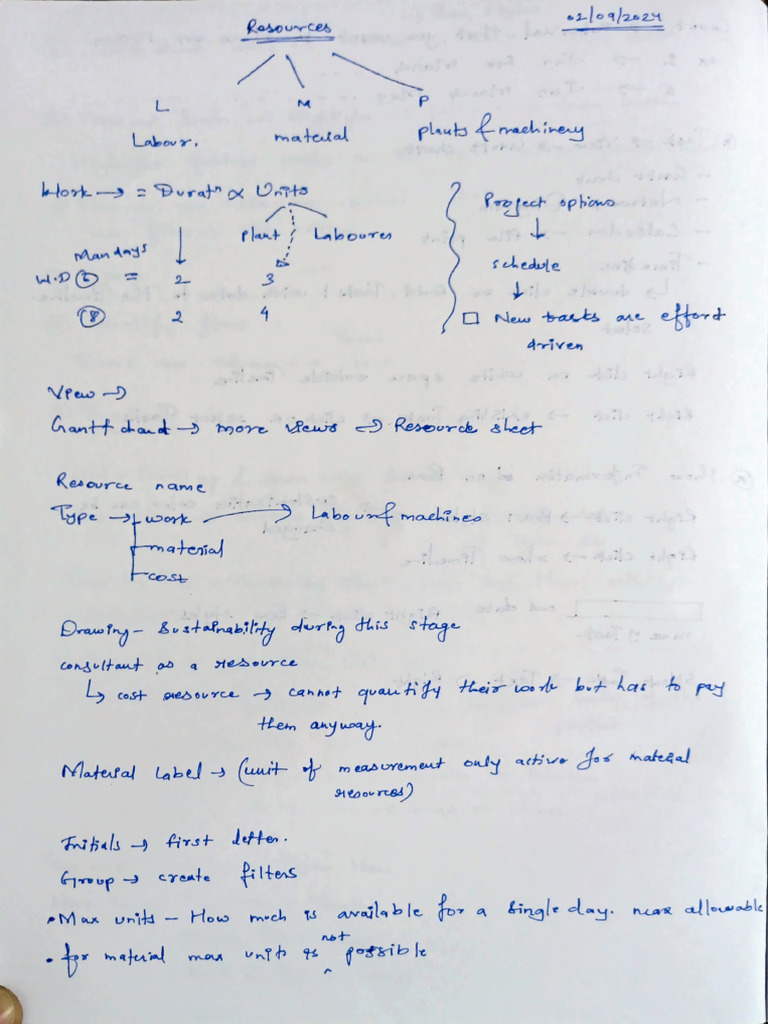 02/09/2024
Resources
L M P
Labour. material plants & machinery
Work → = Duratⁿ ∝ Units
Plant Laboures
Mandays
W.D (6) = 2 3
(8) 2 4
Project options
↓
schedule
↓
□ New tasks are effort
driven
View →
Gantt chard → more views → Resource sheet
Resource name
Type → work → Labour & machines
material
cost
Drawing - Sustainability during this stage
consultant as a resource
↳ cost resource → cannot quantify their work but has to pay
them anyway.
Material Label → (unit of measurement only active for material
resources)
Initials → first letter.
Group → create filters
• Max units - How much is available for a single day. max allowable
• for material max unit is not possible